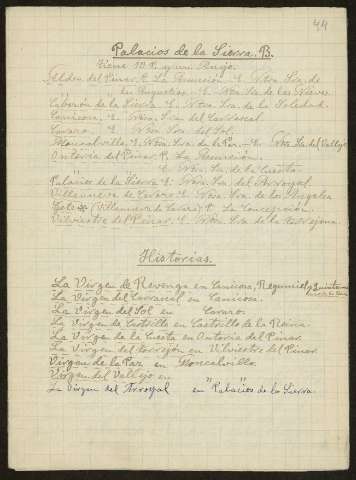 44
Palacios de la Sierra. B.
Tiene 12 P. y un Anejo.
Aldea del Pinar. P. La Asunción. E. Ntra Sra. de
las Angustias. E. Ntra Sra de las Nieves
Cabezón de la Sierra. E. Ntra Sra. de la Soledad.
Canicosa. E. Ntra. Sra. del Carrascal
Covaro. E. Ntra Sra. del Sol.
Moncalvillo. E. Ntra Sra. de la Paz. — E. Ntra Sa. del Vallejo
Ontoria del Pinar. P. La Asunción.
E. Ntra Sa. de la Cuesta
Palacios de la Sierra E. Ntra. Sra. del Arroyal
Villanueva de Carazo E. Ntra Sra. de los Angeles
(Villanueva de Carazo) P. La Concepción.
Vilviestre del Pinar. E. Ntra Sra. de la Torrejona.
Historias.
La Virgen de Revenga en Canicosa, Regumiel y Quintanar
de la Sierra
La Virgen del Carrascal en Canicosa.
La Virgen del Sol en Covaro.
La Virgen de Castrillo en Castrillo de la Reina.
La Virgen de la Cuesta en Ontoria del Pinar.
La Virgen del Torrejón en Vilviestre del Pinar.
Virgen de la Paz en Moncalvillo.
Virgen del Vallejo en
La Virgen del Arroyal en "Palacios de la Sierra.